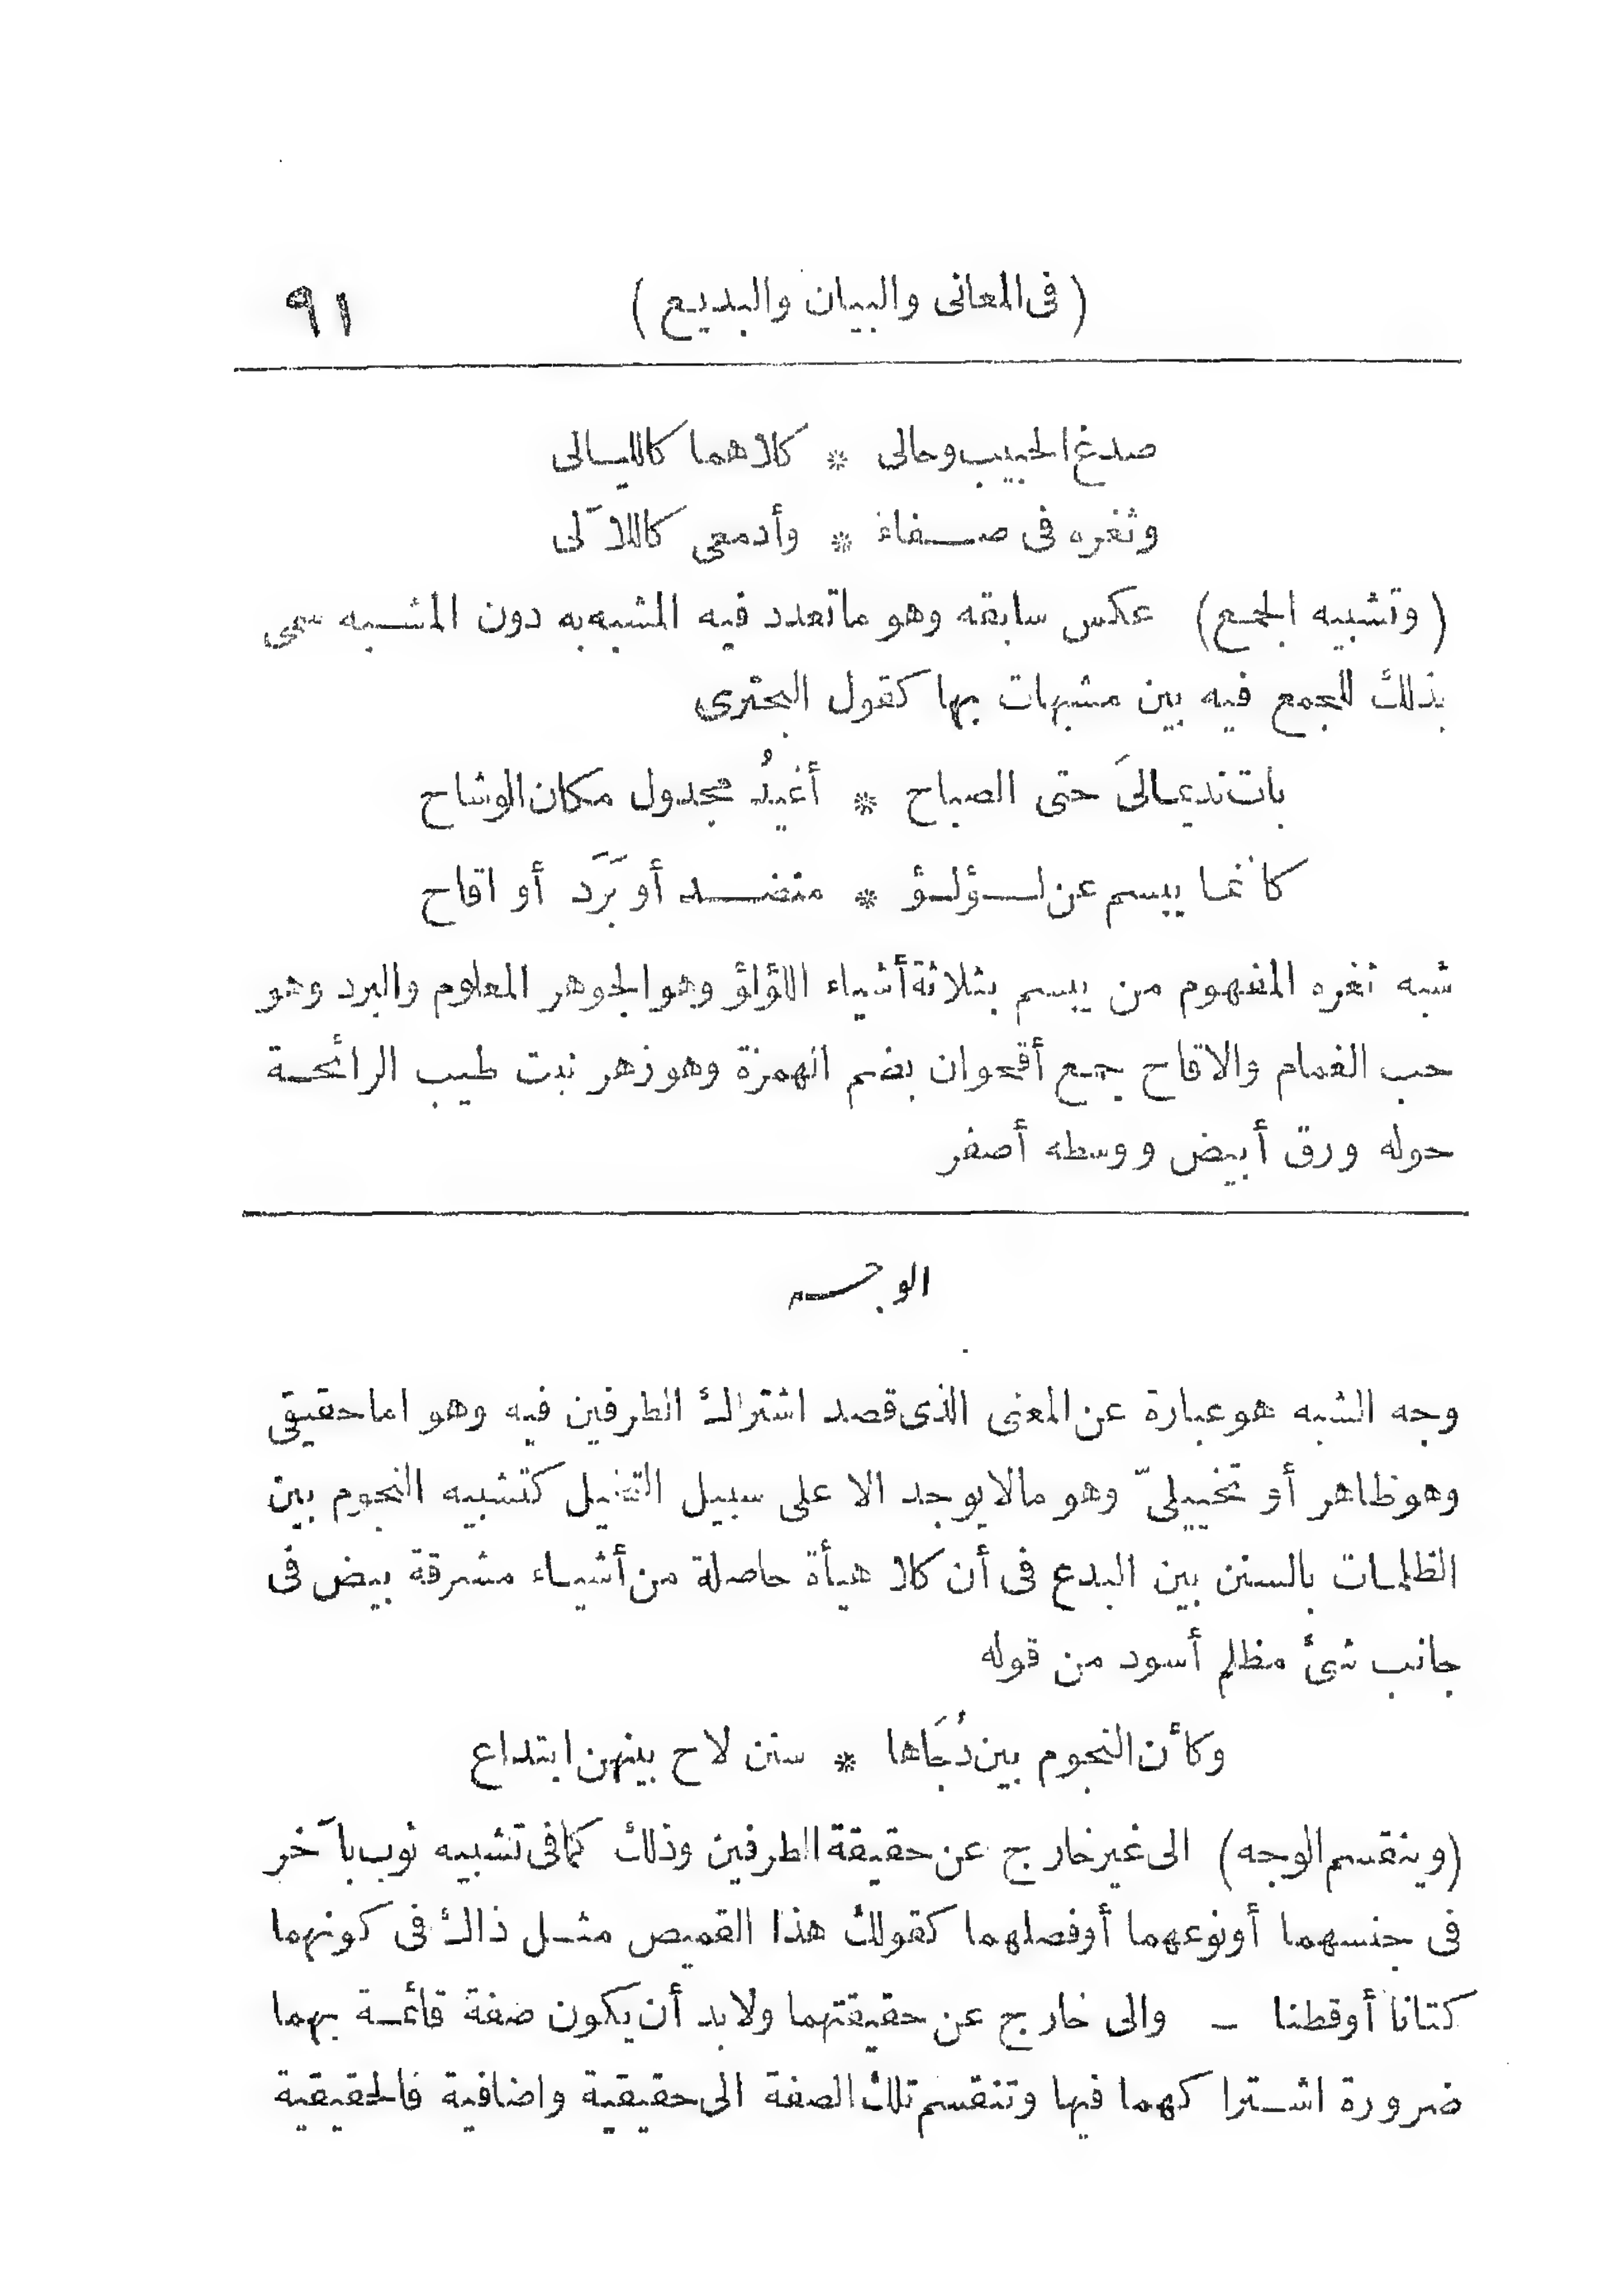 (فى المعانى والبيان والبديع) ٩١
صدغ الحبيب وحالى * كلاهما كالليالى
وثغره فى صفاء * وأدمعى كاللآلى
(وتشبيه الجمع) عكس سابقه وهو ماتعدد فيه المشبه به دون المشبه سمى
بذلك للجمع فيه بين مشبهات بها كقول البحترى
بات نديمالىَ حتى الصباح * أغيدُ مجدول مكان الوشاح
كأنما يبسم عن لؤلؤ * منضد أو بَرَد أو اقاح
شبه ثغره المفهوم من يبسم بثلاثة أشياء اللؤلؤ وهو الجوهر المعلوم والبرد وهو
حب الغمام والاقاح جمع أقحوان بضم الهمزة وهو زهر نبت طيب الرائحة
حوله ورق أبيض ووسطه أصفر
الوجه
وجه الشبه هو عبارة عن المعنى الذى قصد اشتراك الطرفين فيه وهو اما حقيقى
وهو ظاهر أو تخييلىّ وهو مالا يوجد الا على سبيل التخييل كتشبيه النجوم بين
الظلمات بالسنن بين البدع فى أن كلا هيأة حاصلة من أشياء مشرقة بيض فى
جانب شئ مظلم أسود من قوله
وكأن النجوم بين دُجَاها * سنن لاح بينهن ابتداع
(وينقسم الوجه) الى غير خارج عن حقيقة الطرفين وذلك كمافى تشبيه ثوب بآخر
فى جنسهما أونوعهما أوفصلهما كقولك هذا القميص مثل ذاك فى كونهما
كتانا أوقطنا - والى خارج عن حقيقتهما ولابد أن يكون صفة قائمة بهما
ضرورة اشتراكهما فيها وتنقسم تلك الصفة الى حقيقية واضافية فالحقيقية